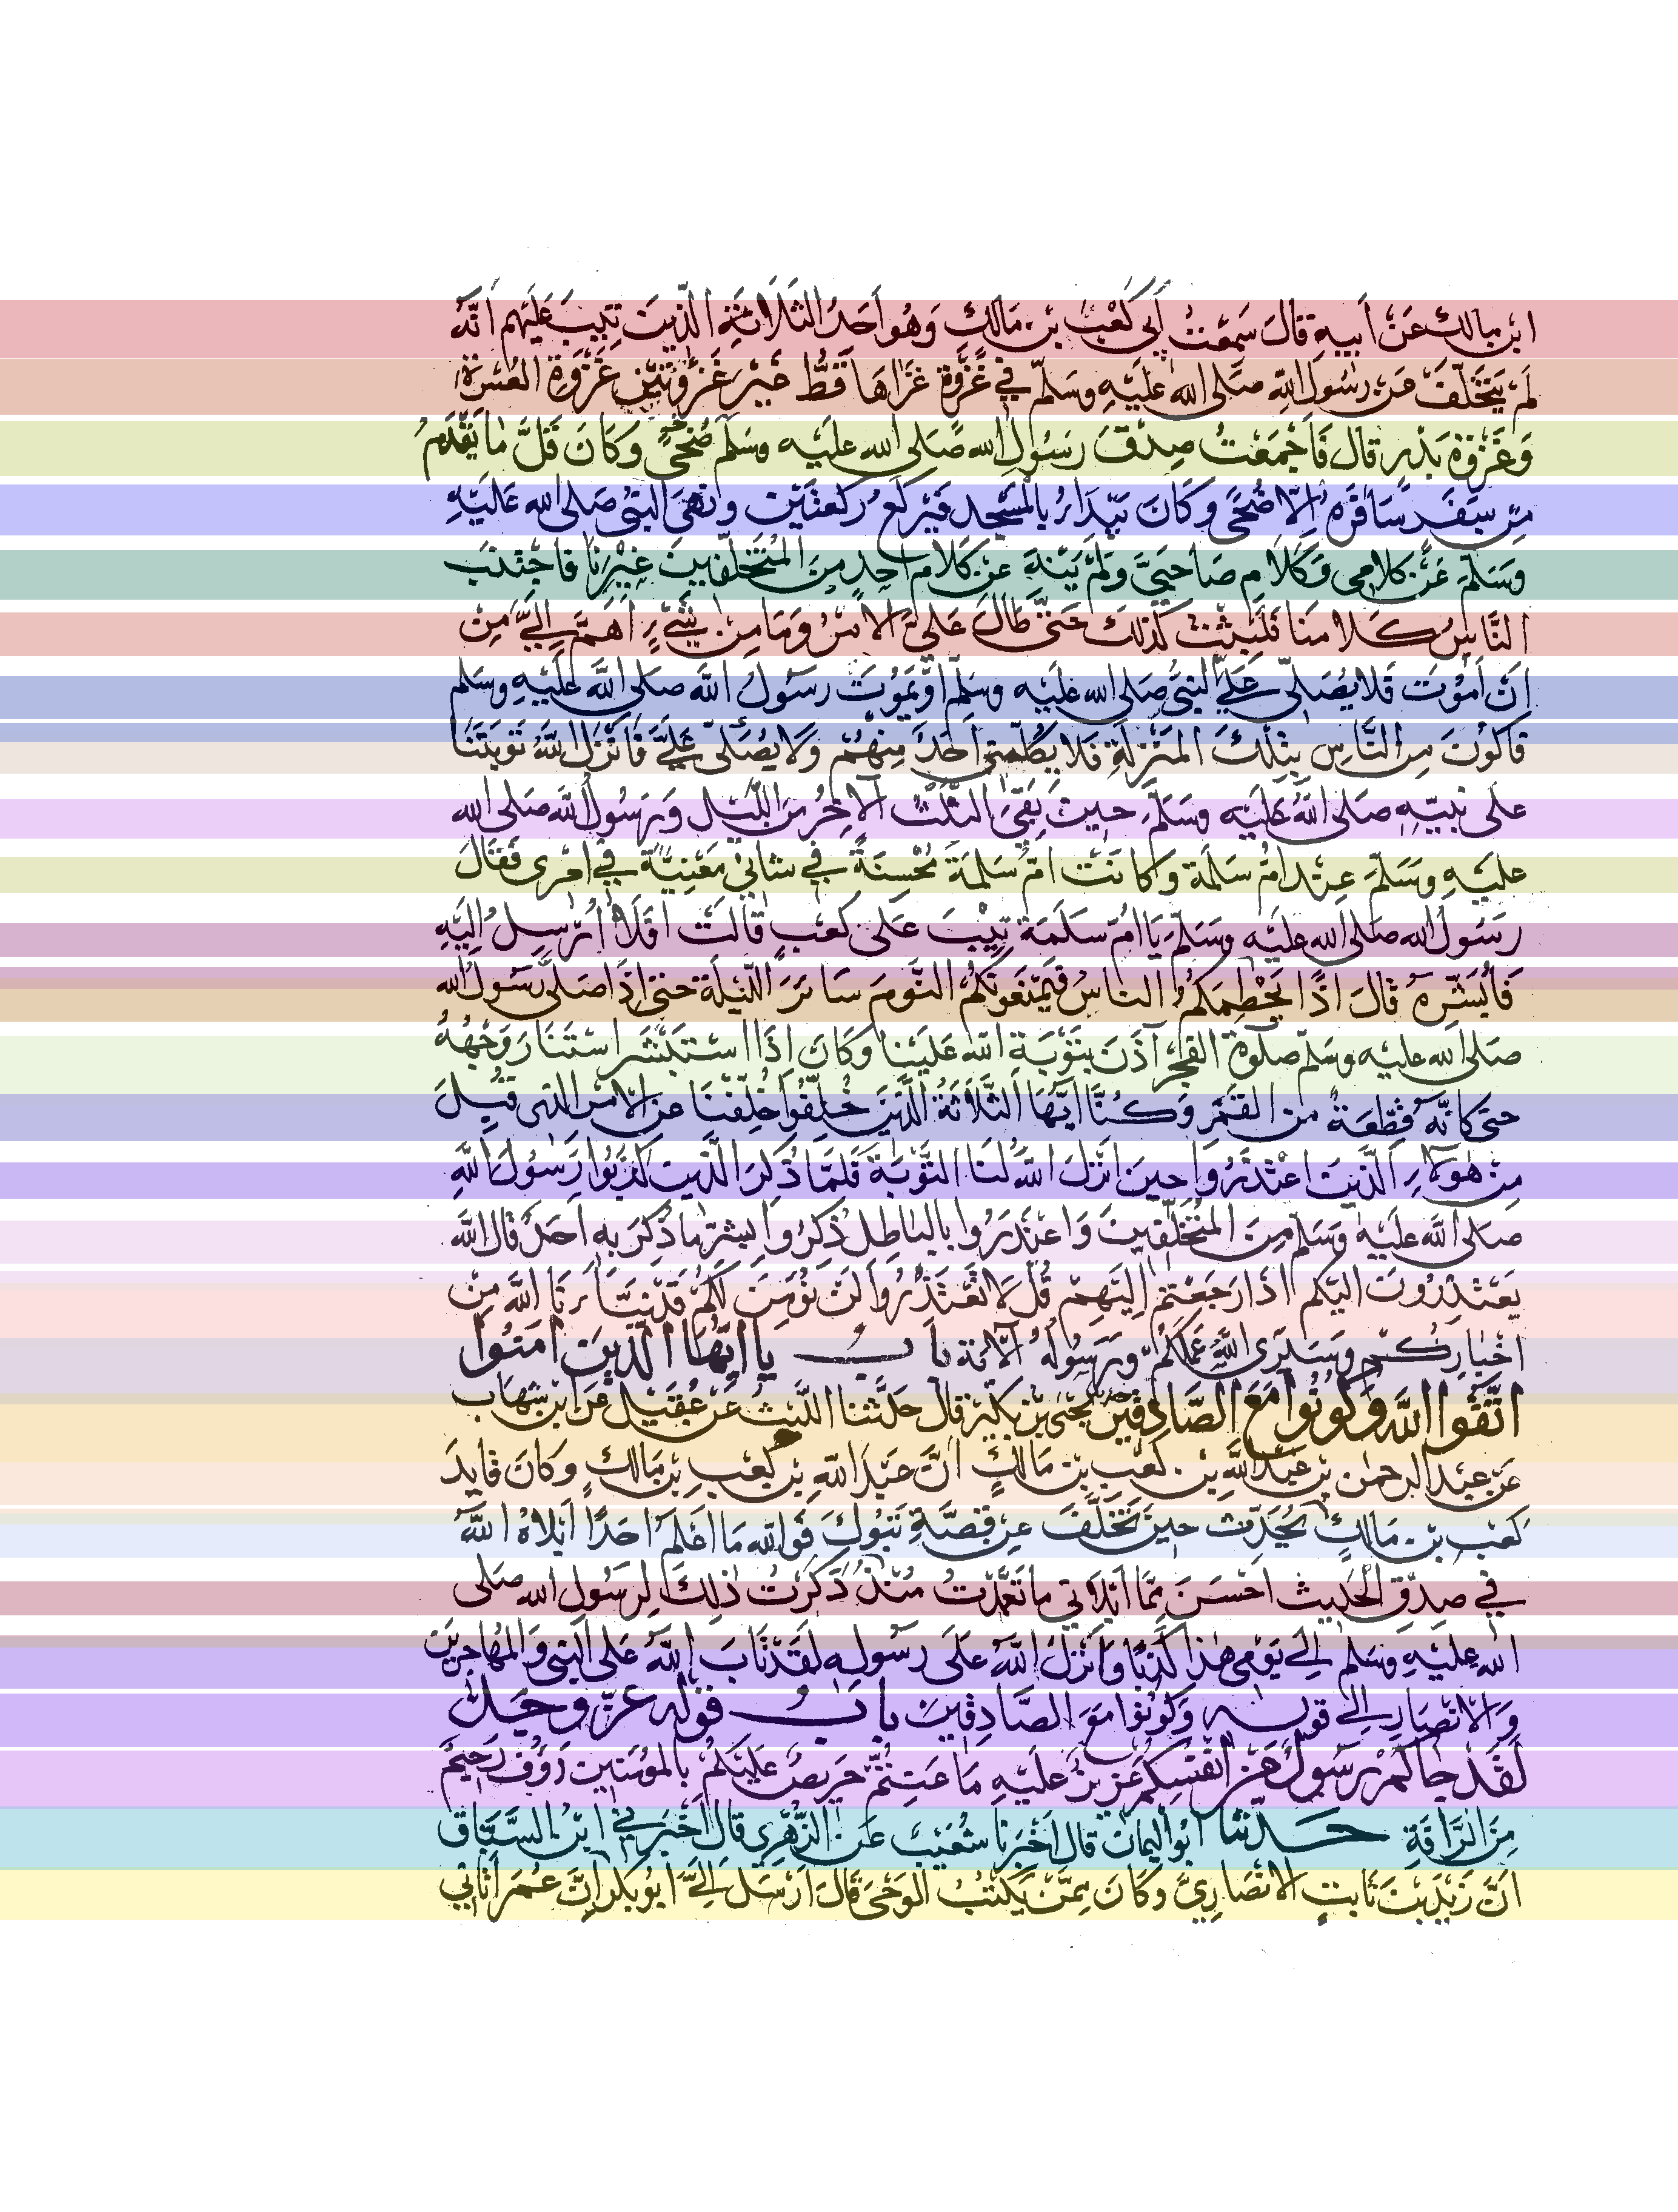 ابن مالك عن أبيه قال سمعت أبي كعب بن مالك وهو أحد الثلاثة الذين تيب عليهم أنه
لم يتخلف عن رسول الله صلى الله عليه وسلم في غزوة غزاها قط غير غزوتين غزوة العسرة
وغزوة بدر قال فأجمعت صدق رسول الله صلى الله عليه وسلم ضحى وكان قل ما يقدم
من سفر سافره إلا ضحى وكان يبدأ بالمسجد فيركع ركعتين ونهى النبي صلى الله عليه
وسلم عن كلامي وكلام صاحبي ولم ينه عن كلام أحد من المتخلفين غيرنا فاجتنب
الناس كلامنا فلبثت كذلك حتى طال علي الأمر وما من شيء أهم إلي من
أن أموت فلا يصلي علي النبي صلى الله عليه وسلم أو يموت رسول الله صلى الله عليه وسلم
فأكون من الناس بتلك المنزلة فلا يكلمني أحد منهم ولا يصلى علي فأنزل الله توبتنا
على نبيه صلى الله عليه وسلم حين بقي الثلث الآخر من الليل ورسول الله صلى الله
عليه وسلم عند أم سلمة وكانت أم سلمة محسنة في شأني معنية في أمري فقال
رسول الله صلى الله عليه وسلم يا أم سلمة تيب على كعب قالت أفلا أرسل إليه
فأبشره قال إذا يحطمكم الناس فيمنعونكم النوم سائر الليلة حتى إذا صلى رسول الله
صلى الله عليه وسلم صلوة الفجر آذن بتوبة الله علينا وكان إذا استبشر استنار وجهه
حتى كأنه قطعة من القمر وكنا أيها الثلاثة الذين خلفوا خلفنا عن الأمر الذي قبل
من هؤلاء الذين اعتذروا حين أنزل الله لنا التوبة فلما ذكر الذين كذبوا رسول الله
صلى الله عليه وسلم من المتخلفين واعتذروا بالباطل ذكروا بشر ما ذكر به أحد قال الله
يعتذرون إليكم إذا رجعتم إليهم قل لا تعتذروا لن نؤمن لكم قد نبأنا الله من
أخباركم وسيرى الله عملكم ورسوله الآية باب يا أيها الذين آمنوا
اتقوا الله وكونوا مع الصادقين يحيى بن بكير قال حدثنا الليث عن عقيل عن ابن شهاب
عن عبد الرحمن بن عبد الله بن كعب بن مالك أن عبد الله بن كعب بن مالك وكان قايد
كعب بن مالك يحدث حين تخلف عن قصة تبوك فوالله ما أعلم أحدا أبلاه الله
في صدق الحديث أحسن مما أبلاني ما تعمدت منذ ذكرت ذلك لرسول الله صلى
الله عليه وسلم إلى يومي هذا كذبا وأنزل الله على رسوله لقد تاب الله على النبي والمهاجرين
والأنصار إلى قوله وكونوا مع الصادقين باب قوله عز وجل
لقد جاكم رسول من أنفسكم عزيز عليه ما عنتم حريص عليكم بالمؤمنين رؤوف رحيم
من الرأفة حدثنا أبو اليمان قال أخبرنا شعيب عن الزهري قال أخبرني ابن السباق
أن زيد بن ثابت الأنصاري وكان ممن يكتب الوحي قال أرسل إلي أبو بكر إن عمر أتاني